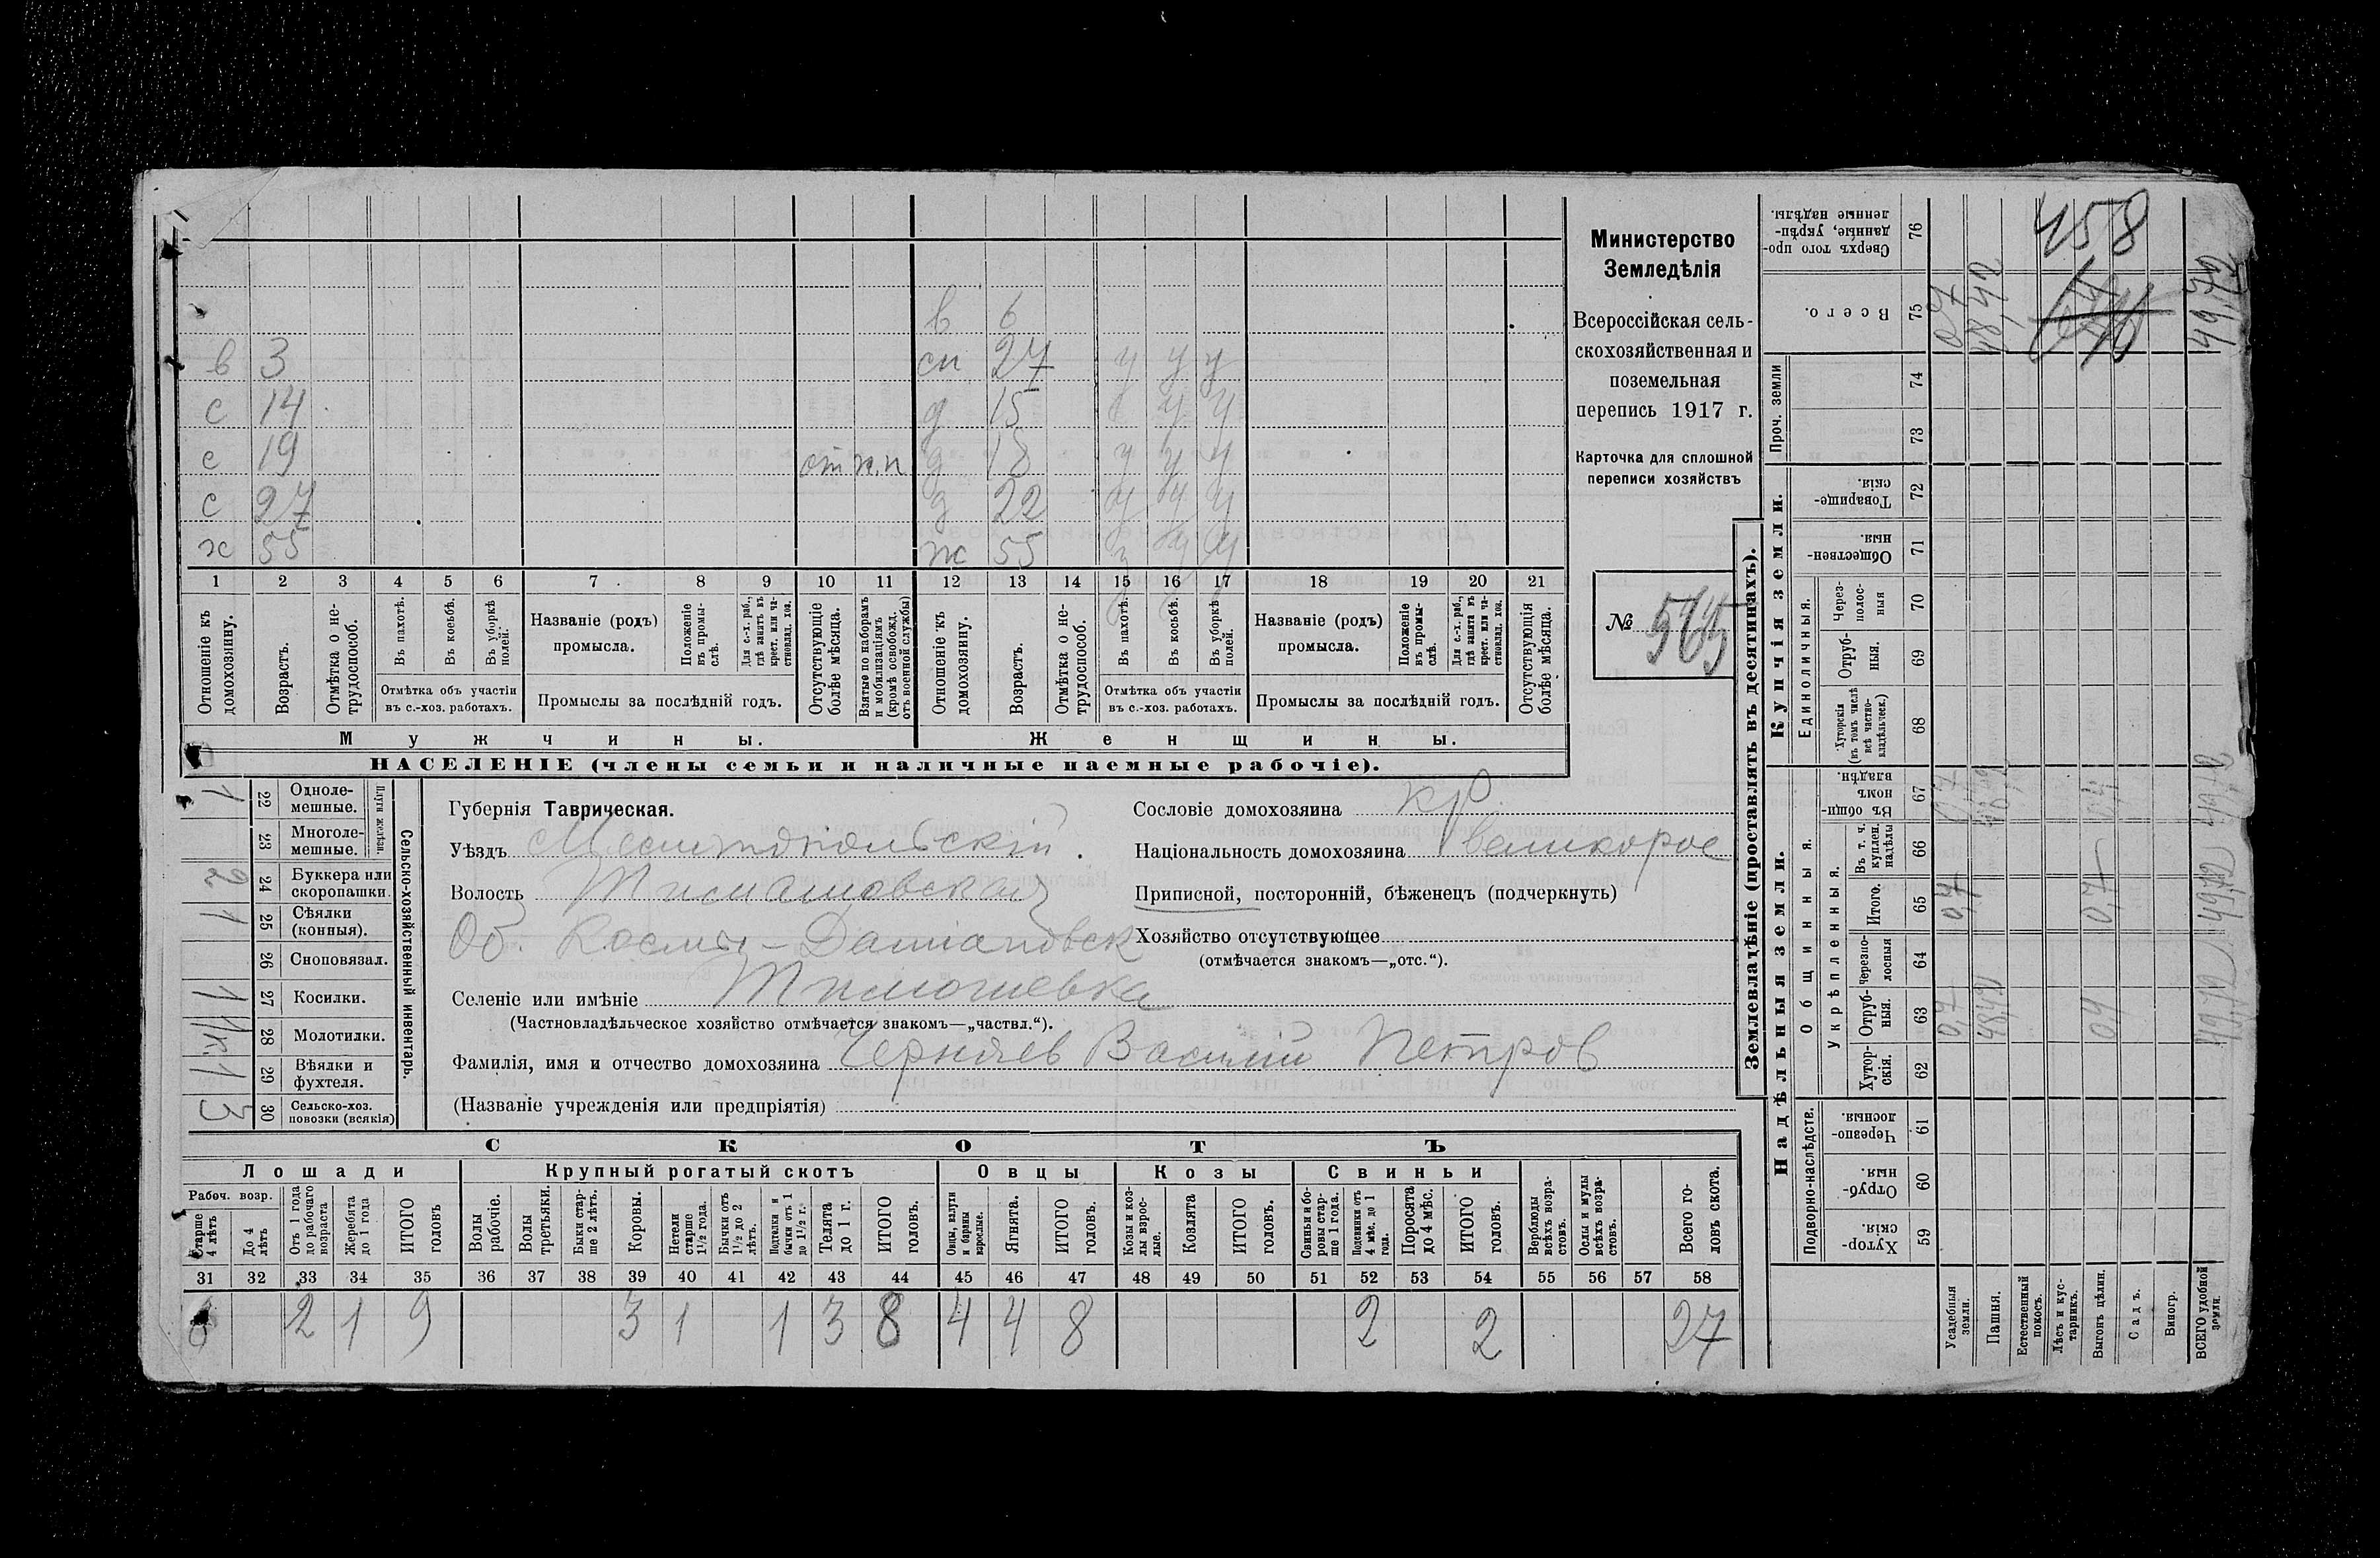 в 6
в 3 сп 27 у у у
с 14 д 15 у у
с 19 от н.п д 18 у у у
с 27 д 22 у у у
х 55 ж 55 у у
1 2 3 4 5 6 7 8 9 10 11 12 13 14 15 16 17 18 19 20 21
Отношеніе къ домохозяину.
Возрастъ.
Отмѣтка о нетрудоспособ.
Въ пахотѣ.
Въ косьбѣ.
Въ уборкѣ полей.
Отмѣтка объ участіи въ с.-хоз. работахъ.
Названіе (родъ) промысла.
Положеніе въ промыслѣ.
Для с.-х. раб., гдѣ занятъ въ крест. или частновлад. хоз.
Промыслы за послѣдній годъ.
Отсутствующіе болѣе мѣсяца.
Взятые по наборамъ и мобилизаціямъ (кромѣ освобожд. отъ военной службы)
Отношеніе къ домохозяину.
Возрастъ.
Отмѣтка о нетрудоспособ.
Въ пахотѣ.
Въ косьбѣ.
Въ уборкѣ полей.
Отмѣтка объ участіи въ с.-хоз. работахъ.
Названіе (родъ) промысла.
Положеніе въ промыслѣ.
Для с.-х. раб., гдѣ занята въ крест. или частновлад. хоз.
Промыслы за послѣдній годъ.
Отсутствующія болѣе мѣсяца.
Мужчины.
Женщины.
НАСЕЛЕНІЕ (члены семьи и наличные наемные рабочіе).
Министерство
Земледѣлія
Всероссійская сель-
скохозяйственная и
поземельная
перепись 1917 г.
Карточка для сплошной
переписи хозяйствъ
№
Сельско-хозяйственный инвентарь.
Плуги желѣзн.
Одноле-
мешные. 22 1
Многоле-
мешные. 23
Буккера или
скоропашки. 24 2
Сѣялки
(конныя). 25 1
Сноповязал. 26
Косилки. 27 1
Молотилки. 28 1к.
Вѣялки и
фухтеля. 29 1
Сельско-хоз.
повозки (всякія) 30 3
Губернія Таврическая.
Уѣздъ Мелитопольскій.
Волость Тимашовская
Об. Косьмо-Даміановск
Селеніе или имѣніе Тимошевка
(Частновладѣльческое хозяйство отмѣчается знакомъ—„частвл.“).
Фамилія, имя и отчество домохозяина Черняев Василій Петров
(Названіе учрежденія или предпріятія)
Сословіе домохозяина кр
Національность домохозяина великорос
Приписной, посторонній, бѣженецъ (подчеркнуть)
Хозяйство отсутствующее
(отмѣчается знакомъ—„отс.“).
СКОТЪ
Лошади Крупный рогатый скотъ Овцы Козы Свиньи
Рабоч. возр.
Старше 4 лѣтъ
До 4 лѣтъ
Отъ 1 года до рабочаго возраста
Жеребята до 1 года
ИТОГО головъ
Волы рабочіе.
Волы третьяки.
Быки старше 2 лѣтъ.
Коровы.
Нетели старше 1½ года.
Бычки отъ 1½ до 2 лѣтъ.
Подтелки и бычки отъ 1 до 1½ г.
Телята до 1 г.
ИТОГО головъ.
Овцы, валухи и бараны взрослые.
Ягнята.
ИТОГО головъ.
Козы и козлы взрослые.
Козлята
ИТОГО головъ.
Свиньи и боровы старше 1 года.
Подсвинки отъ 4 мѣс. до 1 года.
Поросята до 4 мѣс.
ИТОГО головъ.
Верблюды всѣхъ возрастовъ.
Ослы и мулы всѣхъ возрастовъ.
Всего головъ скота.
31 32 33 34 35 36 37 38 39 40 41 42 43 44 45 46 47 48 49 50 51 52 53 54 55 56 57 58
6 2 1 9 3 1 1 3 8 4 4 8 2 2 27
Землевладѣніе (проставлять въ десятинахъ).
Надѣльныя земли.
Купчія земли.
Проч. земли
Подворно-наслѣдств.
Общинныя.
Укрѣпленныя.
Единоличныя.
Сверхъ того проданные, укрѣпленные надѣлы. 76
Всего. 75 0,7 48,42 49,72
74
73
Товарищескія. 72
Общественныя. 71
Черезполосныя 70
Отрубныя. 69
Хуторскія (въ томъ числѣ всѣ частновладѣльческ.) 68
Въ общинномъ владѣн. 67
Въ т. ч. куплен. надѣлы 66
Итого. 65 0,7
Черезполосныя 64
Отрубныя. 63 0,7
Хуторскія. 62
Черезполосныя. 61
Отрубныя. 60
Хуторскія. 59
Усадебныя земли.
Пашня.
Естественный покосъ.
Лѣсъ и кустарникъ.
Выгонъ цѣлин.
Садъ.
Виногр.
ВСЕГО удобной земли.
458